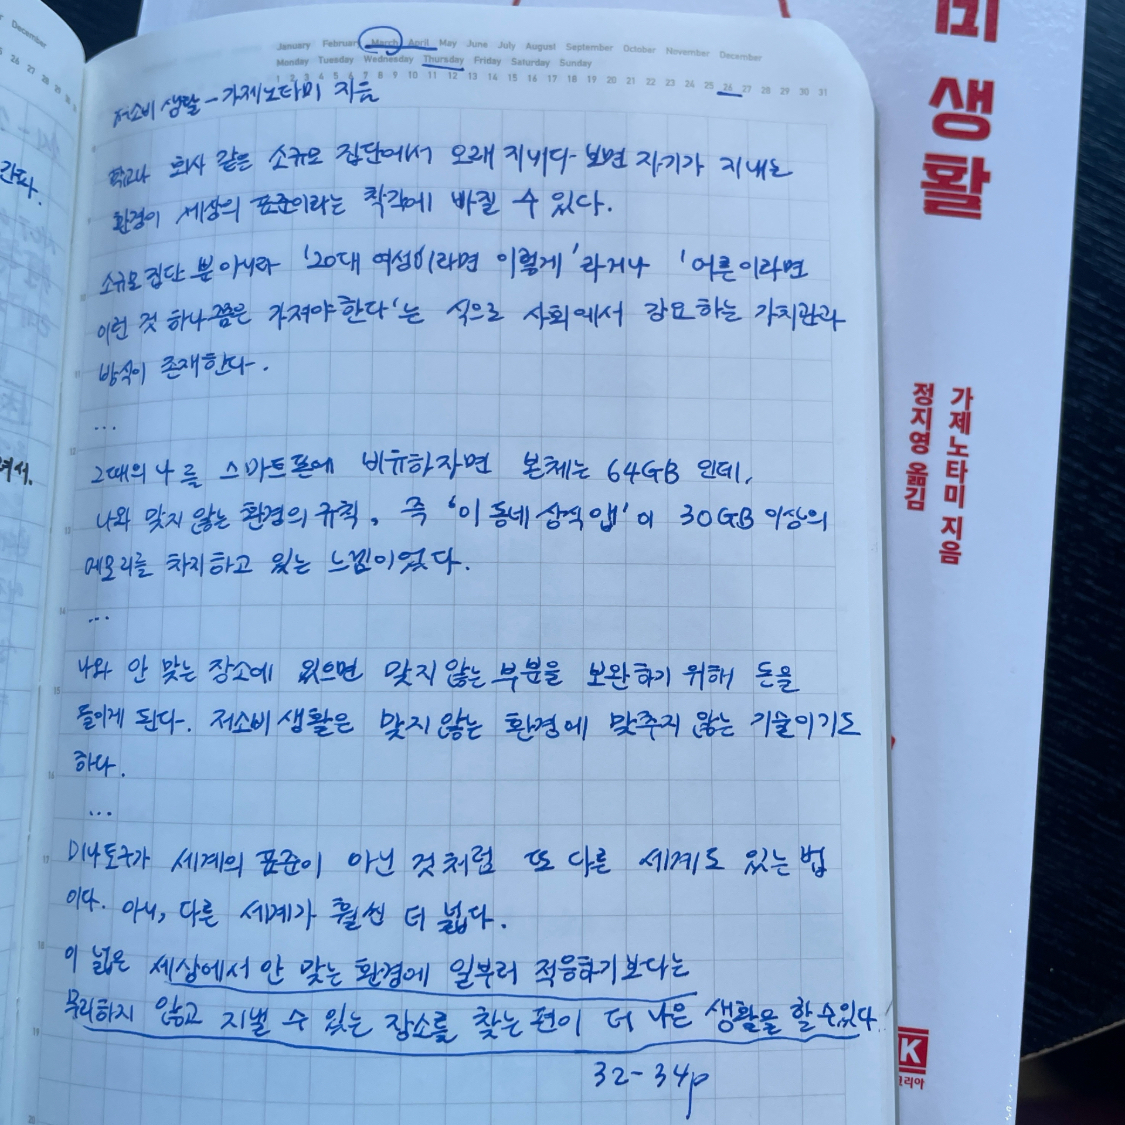 December
26 27 28 29 30 31
간다.
려서.
January February March April May June July August September October November December
Monday Tuesday Wednesday Thursday Friday Saturday Sunday
1 2 3 4 5 6 7 8 9 10 11 12 13 14 15 16 17 18 19 20 21 22 23 24 25 26 27 28 29 30 31
저소비 생활 - 가제노타미 지음
학교나 회사 같은 소규모 집단에서 오래 지내다 보면 자기가 지내는
환경이 세상의 표준이라는 착각에 빠질 수 있다.
소규모 집단 뿐 아니라 '20대 여성이라면 이렇게'라거나 '어른이라면
이런 것 하나쯤은 가져야 한다'는 식으로 사회에서 강요하는 가치관과
방식이 존재한다.
...
그때의 나를 스마트폰에 비유하자면 본체는 64GB 인데,
나와 맞지 않는 환경의 규칙, 즉 '이 동네 상식 앱'이 30GB 이상의
메모리를 차지하고 있는 느낌이었다.
...
나와 안 맞는 장소에 있으면 맞지 않는 부분을 보완하기 위해 돈을
들이게 된다. 저소비 생활은 맞지 않는 환경에 맞추지 않는 기술이기도
하다.
...
미나토구가 세계의 표준이 아닌 것처럼 또 다른 세계도 있는 법
이다. 아니, 다른 세계가 훨씬 더 넓다.
이 넓은 세상에서 안 맞는 환경에 일부러 적응하기보다는
무리하지 않고 지낼 수 있는 장소를 찾는 편이 더 나은 생활을 할 수 있다.
32-34p
미 생활
가제노타미 지음
정지영 옮김
K
코리아